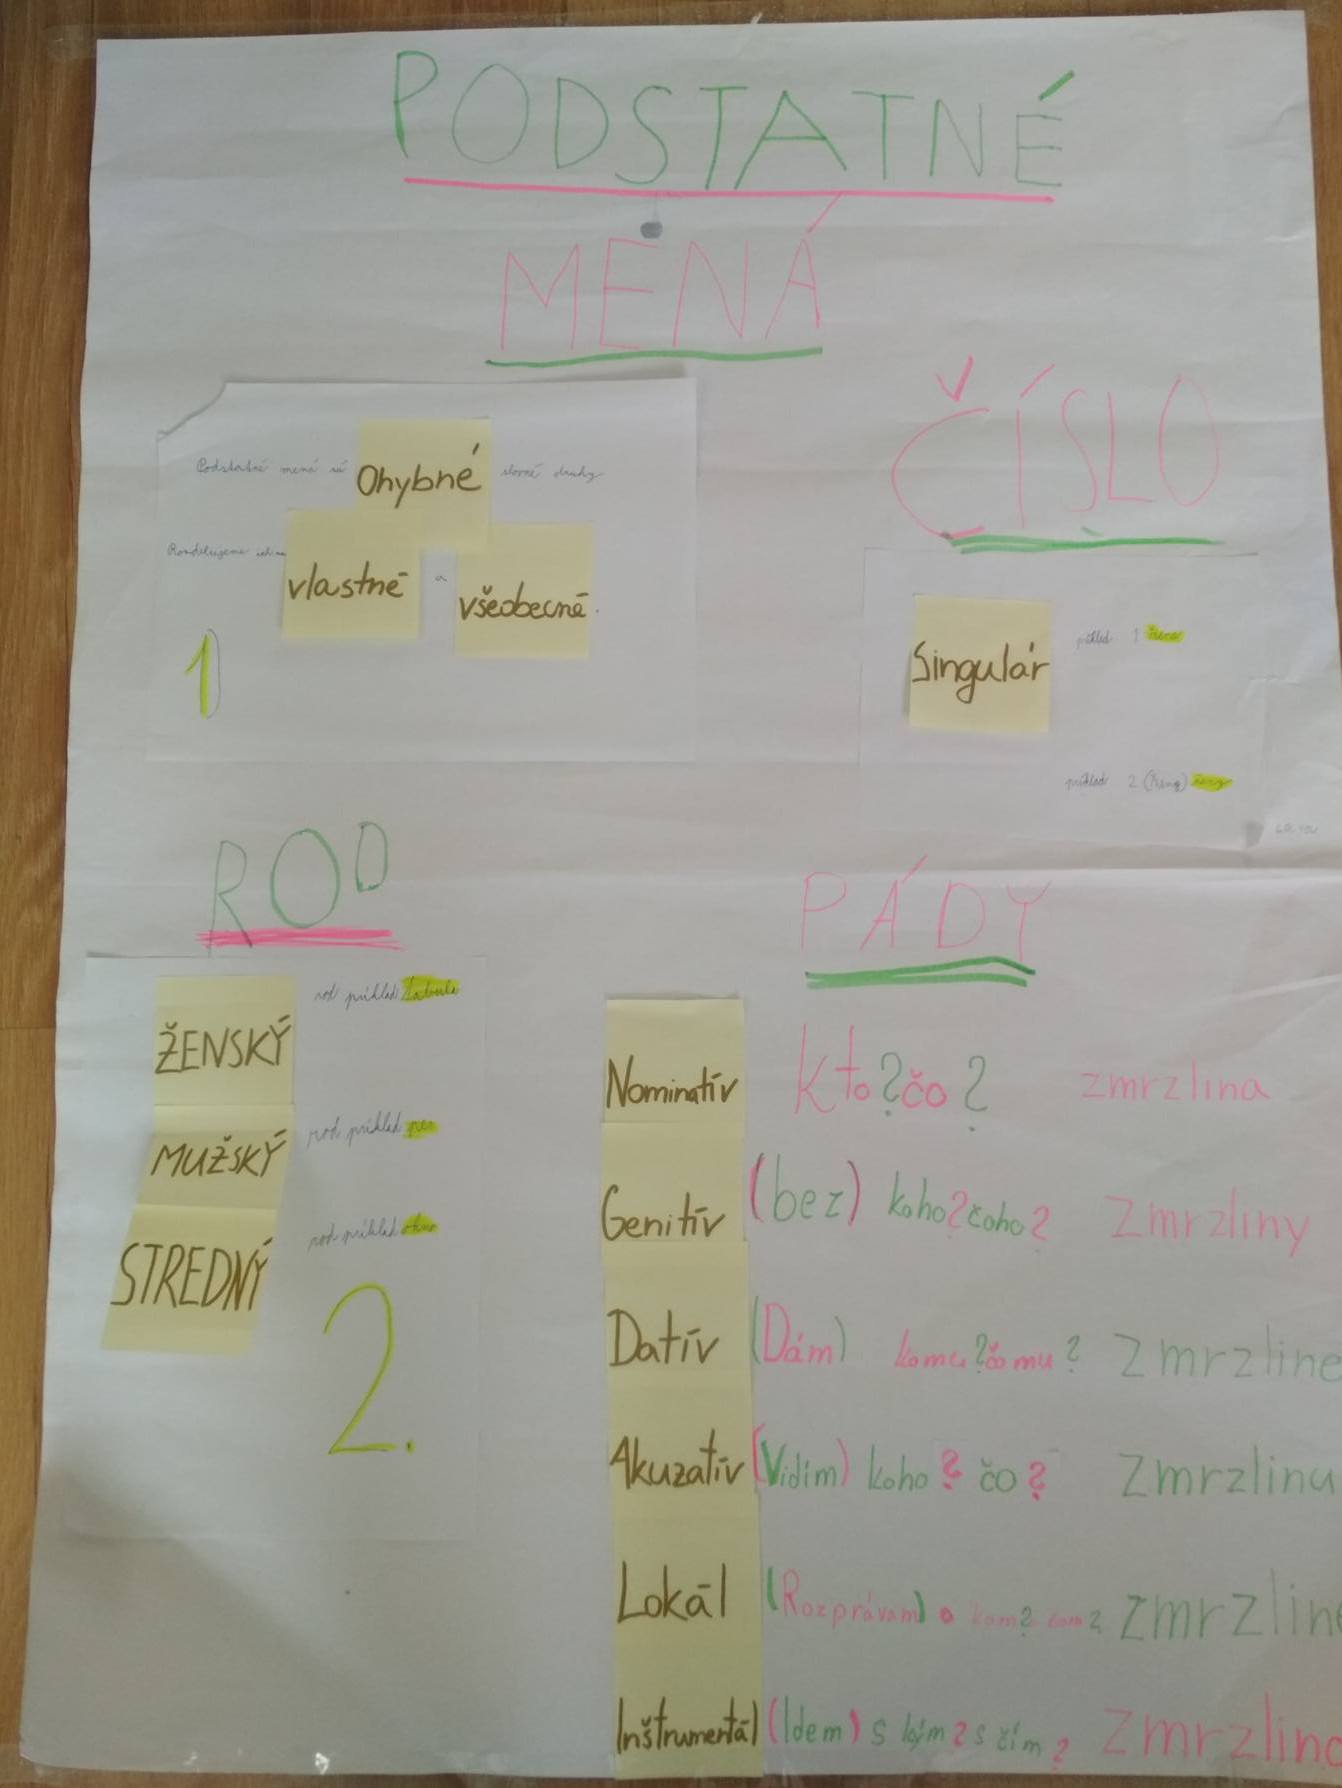 PODSTATNÉ
MENÁ
Podstatné mená sú Ohybné slovné druhy
Rozdeľujeme ich na vlastné a všeobecné.
1
ČÍSLO
Singulár
príklad 1 žena
príklad 2 (ženy) ženy
ROD
ŽENSKÝ rod príklad tabuľa
MUŽSKÝ rod príklad pes
STREDNÝ rod príklad okno
2.
PÁDY
Nominatív Kto? čo? zmrzlina
Genitív (bez) koho? čoho? Zmrzliny
Datív (Dám) komu? čomu? Zmrzline
Akuzatív (Vidím) koho? čo? Zmrzlinu
Lokál (Rozprávam) o kom? čom? Zmrzlin
Inštrumentál (Idem) s kým? s čím? Zmrzlino